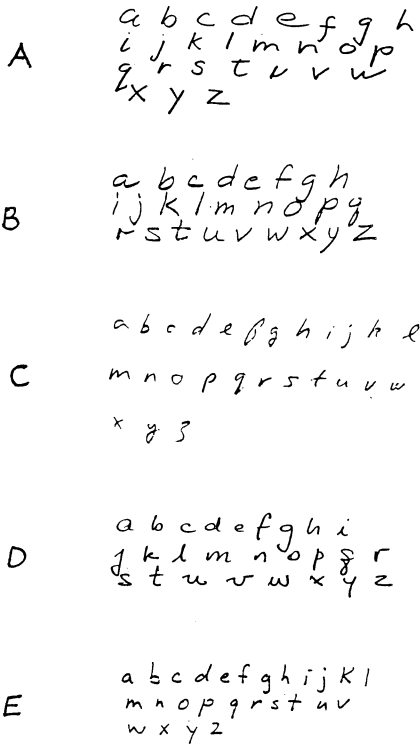 a b c d e f g h
A
i j k l m n o p
q r s t u v w
x y z
a b c d e f g h
B
i j k l m n o p q
r s t u v w x y z
a b c d e f g h i j k l
C
m n o p q r s t u v w
x y z
a b c d e f g h i
D
j k l m n o p q r
s t u v w x y z
a b c d e f g h i j k l
E
m n o p q r s t u v
w x y z